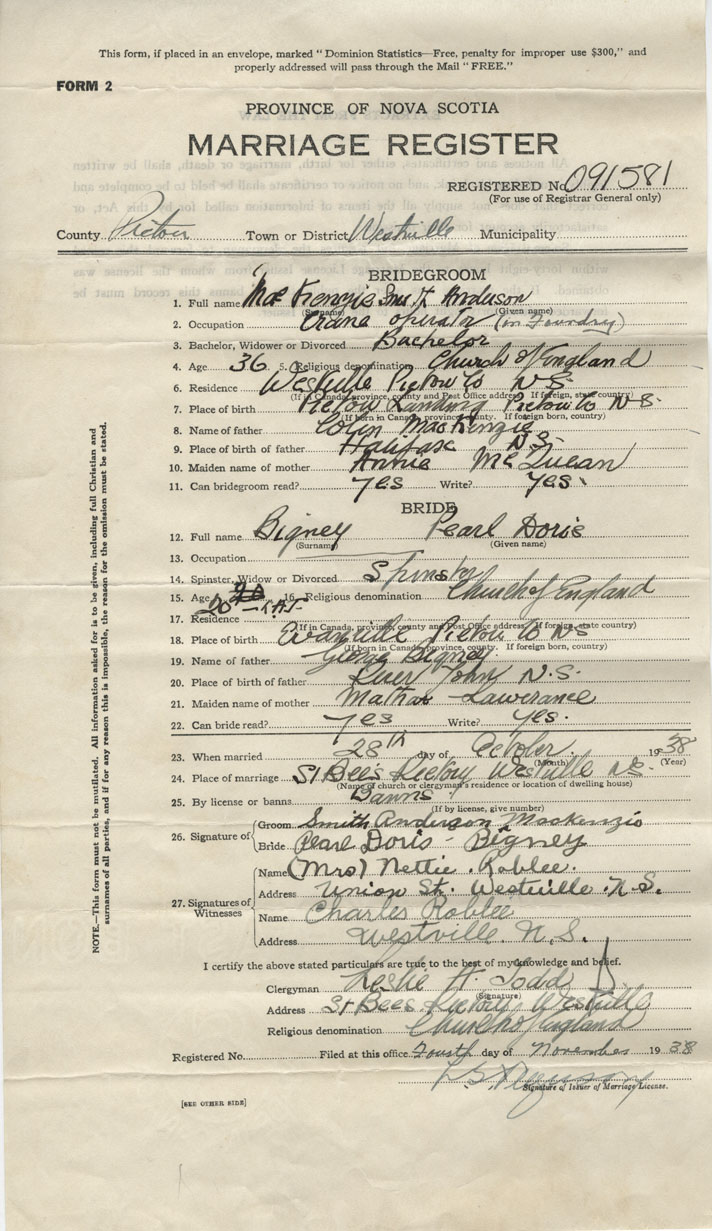 This form, if placed in an envelope, marked "Dominion Statistics—Free, penalty for improper use $300," and
properly addressed will pass through the Mail "FREE."
FORM 2
PROVINCE OF NOVA SCOTIA
MARRIAGE REGISTER
REGISTERED No. 091581
(For use of Registrar General only)
County Pictou Town or District Westville Municipality
BRIDEGROOM
1. Full name MacKenzie Smith Anderson
(Surname) (Given name)
2. Occupation Crane operator (in Foundry)
3. Bachelor, Widower or Divorced Bachelor
4. Age 36 5. Religious denomination Church of England
6. Residence Westville Pictou Co N.S.
(If in Canada, province, county and Post Office address. If foreign, state country)
7. Place of birth Pictou Landing Pictou Co N.S.
(If born in Canada, province, county. If foreign born, country)
8. Name of father Colin MacKenzie
9. Place of birth of father Halifax N.S.
10. Maiden name of mother Annie McLuean
11. Can bridegroom read? yes Write? yes.
BRIDE
12. Full name Bigney Pearl Doris
(Surname) (Given name)
13. Occupation
14. Spinster, Widow or Divorced Spinster
15. Age 20 16. Religious denomination Church of England
17. Residence
(If in Canada, province, county and Post Office address. If foreign, state country)
18. Place of birth Evansville Pictou Co NS
(If born in Canada, province, county. If foreign born, country)
19. Name of father George Bigney
20. Place of birth of father River John N.S.
21. Maiden name of mother Lawerance
22. Can bride read? yes Write? yes.
23. When married 28th day of October. 1938
(Month) (Year)
24. Place of marriage St Bees Rectory Westville N.S.
(Name of church or clergyman's residence or location of dwelling house)
25. By license or banns Banns
(If by license, give number)
26. Signature of
Groom Smith Anderson Mackenzie
Bride Pearl Doris - Bigney
27. Signatures of Witnesses
Name (Mrs) Nettie. Roblee.
Address Union St. Westville N.S.
Name Charles Roblee
Address Westville. N.S.
I certify the above stated particulars are true to the best of my knowledge and belief.
Clergyman Leslie A. Todd
(Signature)
Address St Bees Rectory Westville
Religious denomination Church of England
Registered No. Filed at this office Fourth day of November 1938
Signature of Issuer of Marriage License.
[SEE OTHER SIDE]
NOTE.—This form must not be mutilated. All information asked for is to be given, including full Christian and
surnames of all parties, and if for any reason this is impossible, the reason for the omission must be stated.